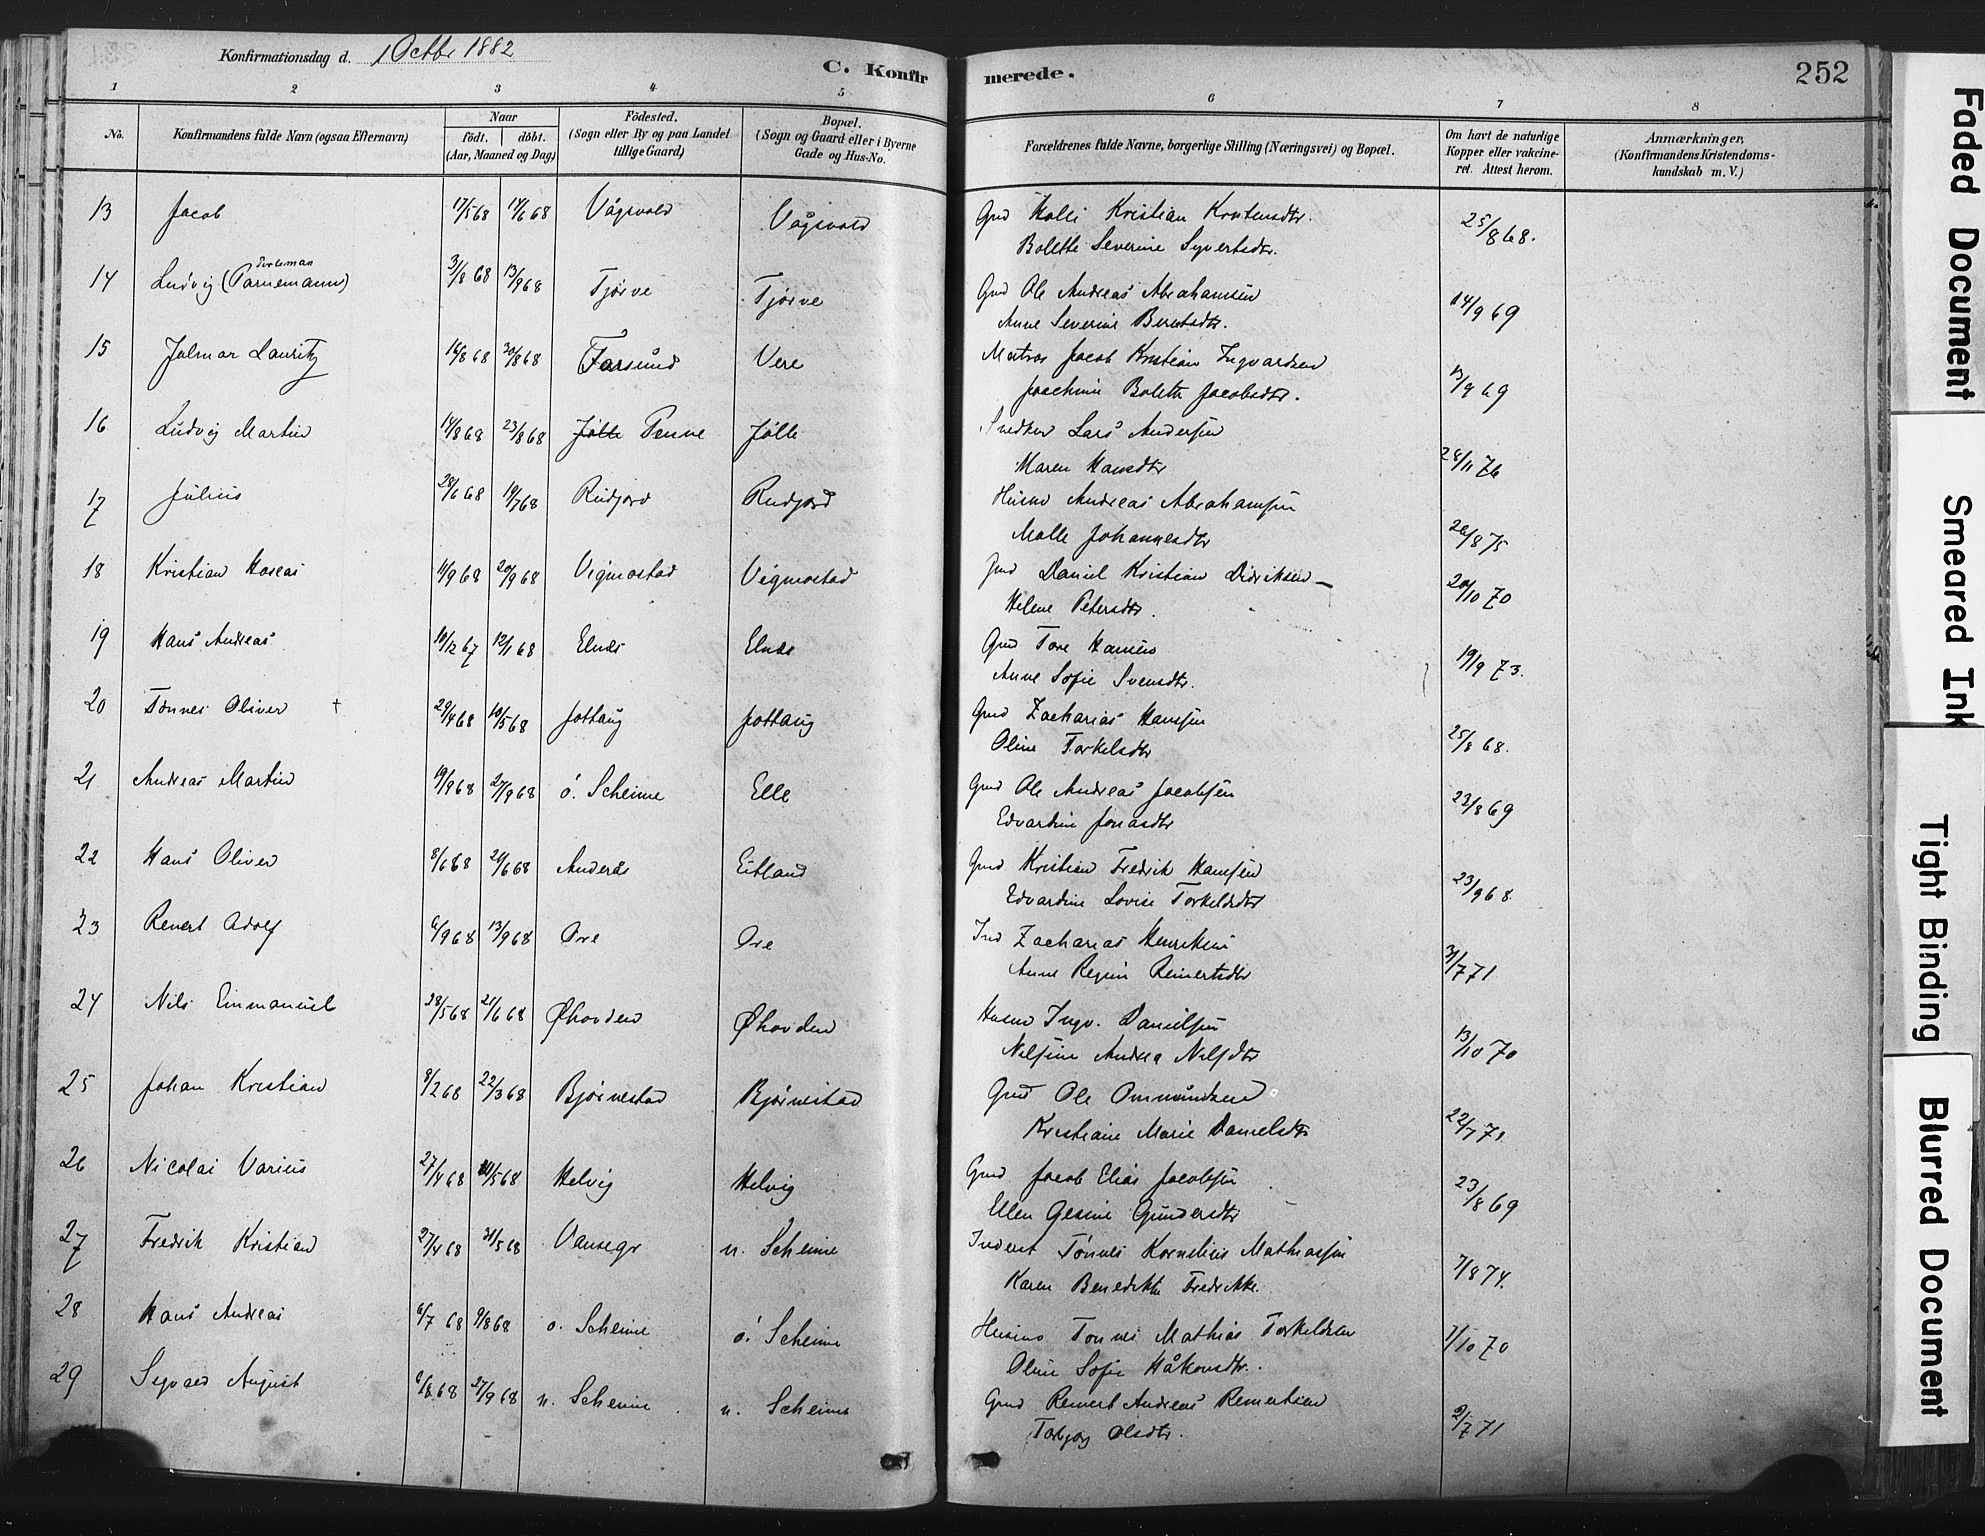 Konfirmationsdag d. 1 Octbr 1882
C. Konfirmerede.
252
1 2 3 4 5 6 7 8
No.
Konfirmandens fulde Navn (ogsaa Efternavn)
Naar
födt. döbt.
(Aar, Maaned og Dag)
Födested.
(Sogn eller By og paa Landet
tillige Gaard)
Bopæl.
(Sogn og Gaard eller i Byerne
Gade og Hus-No.
Forældrenes fulde Navne, borgerlige Stilling (Næringsvei) og Bopæl.
Om havt de naturlige
Kopper eller vakcine-
ret. Attest herom.
Anmærkninger,
(Konfirmandens Kristendoms-
kundskab m. V.)
13 Jacob 17/5 68 14/6 68 Vågsvold Vågsvold Gmd Kristian 25/8 68.
Bolette Severine Syvertsdtr.
14 Ludvig 31/8 68 13/9 68 Tjørve Tjørve Gmd Ole Andreas Abrahamsen 14/9 69
Anne Severine Berntsdtr.
15 Jalmar Lauritz 16/8 68 30/8 68 Farsund Vere Matros Jacob Kristian Ingvardsen 13/9 69
Joachine Bolette Jacobsdtr.
16 Ludvig Martin 14/8 68 23/8 68 Jølle Penne Jølle Snedker Lars Andersen
Maren Hansdtr 28/11 76
17 Julius 28/6 68 19/7 68 Rudjord Rudjord Husmd Andreas Abrahamsen
Malle Johannesdtr 26/8 75
18 Kristian Hoseas 11/9 68 20/9 68 Vigmostad Vigmostad Gmd Daniel Kristian Didriksen 20/10 70
Helene Petersdtr.
19 Hans Andreas 10/12 67 12/1 68 Elnes Elnes Gmd Tore Hansen 19/9 73.
Anne Sofie Svensdtr.
20 Tønnes Oliver † 29/4 68 10/5 68 Jottaug Jottaug Gmd Zacharias Hansen 25/8 68.
Oline Torkelsdtr
21 Andreas Martin 19/9 68 27/9 68 ó. Scheime Elle Gmd Ole Andreas Jacobsen 23/8 69
Edvardine Jonasdtr
22 Hans Oliver 8/6 68 21/6 68 Eitland Gmd Kristian Fredrik Hansen 23/9 68.
Edvardine Lovise Torkeldsdtr
23 Renert Adolf 6/9 68 13/9 68 Ore Ore Ind Zacharias Henriksen 31/7 71
Anne Regine Reinertsdtr
24 Nils Emmanuel 28/5 68 21/6 68 Øhovden Øhovden Husmd Ingv. Danielsen
Nilsine Andrea Nilsdtr 13/10 70
25 Johan Kristian 8/2 68 22/3 68 Bjørnestad Bjørnestad Gmd Ole Ommundsen
Kristiane Marie Danielsdtr 22/7 71.
26 Nicolai Varius 27/4 68 10/5 68 Helvig Helvig Gmd Jacob Elias Jacobsen 23/8 69
Ellen Gesine Gundersdtr
27 Fredrik Kristian 27/4 68 31/5 68 Vansegr n. Scheime Inderst Tønnes Kornelius Mathiassen 7/8 74.
Karen Benedikte Fredrikke.
28 Hans Andreas 6/7 68 9/8 68 o. Scheime ó. Scheime Husmd Tønnes Mathias Torkeldsen 7/10 70
Oline Sofie Håkonsdtr.
29 Sigvard August 6/8 68 27/9 68 n. Scheime n. Scheime Gmd Renert Andreas Renertsen 2/7 71
Torbjørg Olsdtr.
Faded Document
Smeared Ink
Tight Binding
Blurred Document